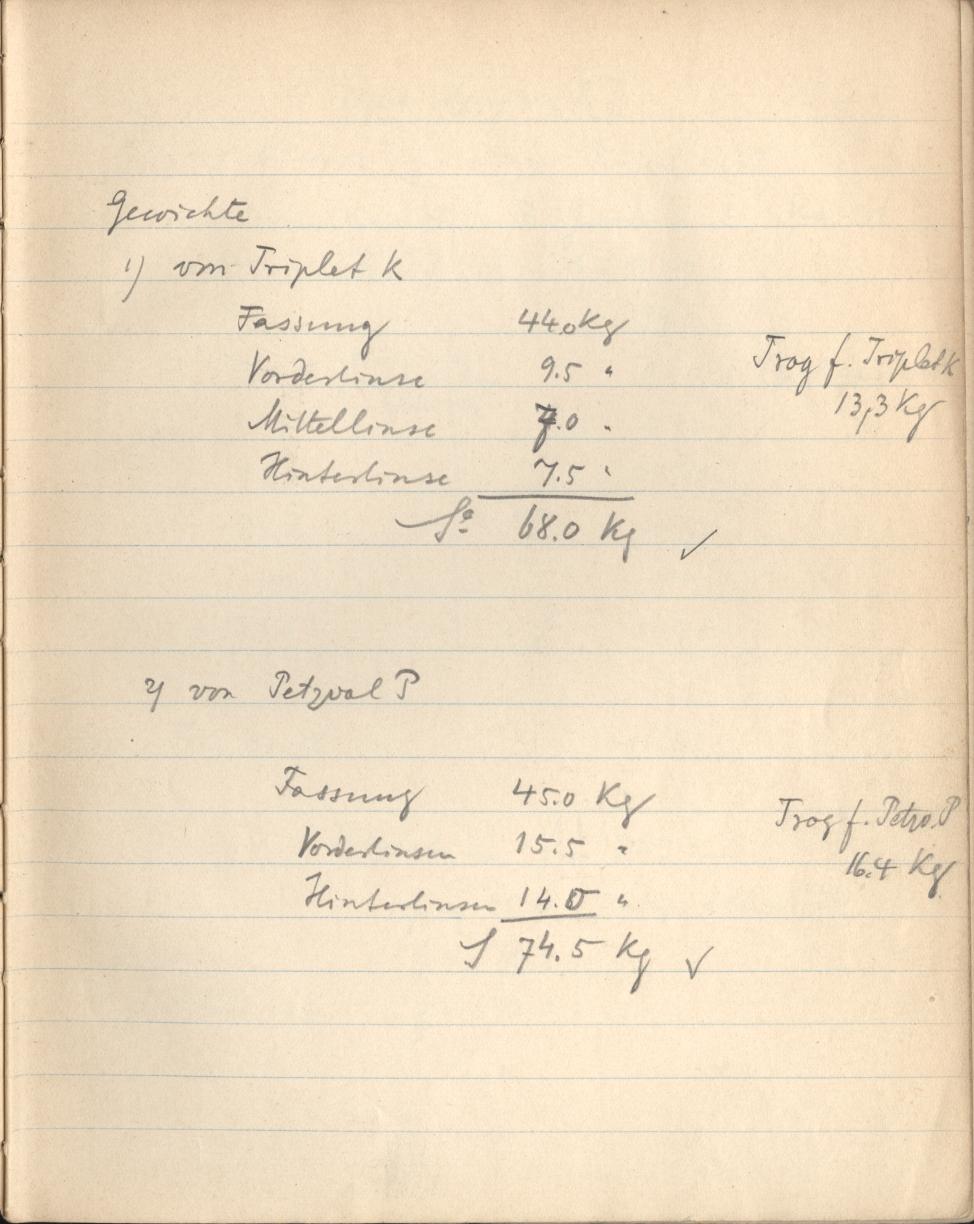 Gewichte
1) von Triplet K
Fassung 44.0 Kg
Vorderlinse 9.5 "
Trog f. Triplet K
Mittellinse 7.0 "
13,3 Kg
Hinterlinse 7.5 "
Sa 68.0 Kg ✓
2) von Petzval P
Fassung 45.0 Kg
Trog f. Petzv. P
Vorderlinsen 15.5 "
16.4 Kg
Hinterlinsen 14.0 "
S 74.5 Kg ✓